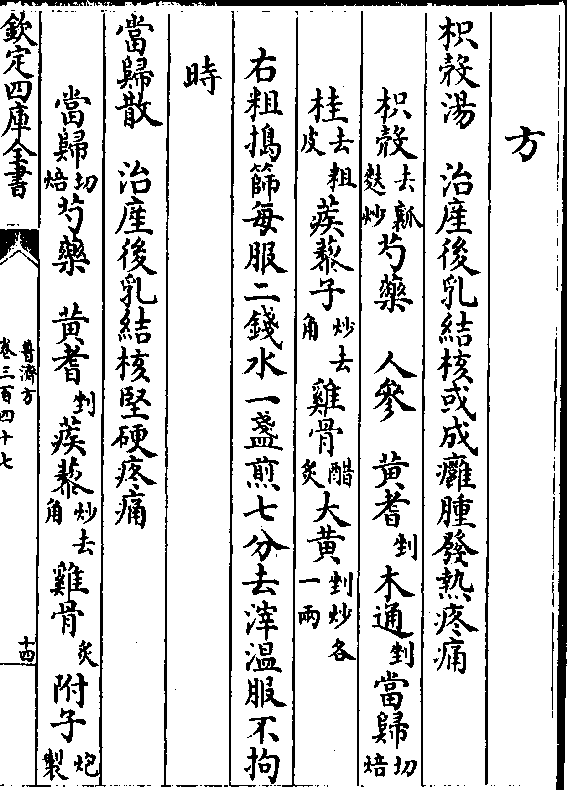 方
枳殻湯　治産後乳結核或成癰腫發熱疼痛
枳殻去瓤麩炒芍藥　人參　黄耆剉木通剉當歸切焙
桂去粗皮蒺藜子炒去角雞骨醋炙大黄剉炒各一兩
右粗搗篩每服二錢水一盞煎七分去滓温服不拘
時
當歸散　治産後乳結核堅硬疼痛
當歸切焙芍藥　黄耆剉蒺藜炒去角雞骨炙附子炮製
欽定四庫全書
普濟方
卷三百四十七
十四